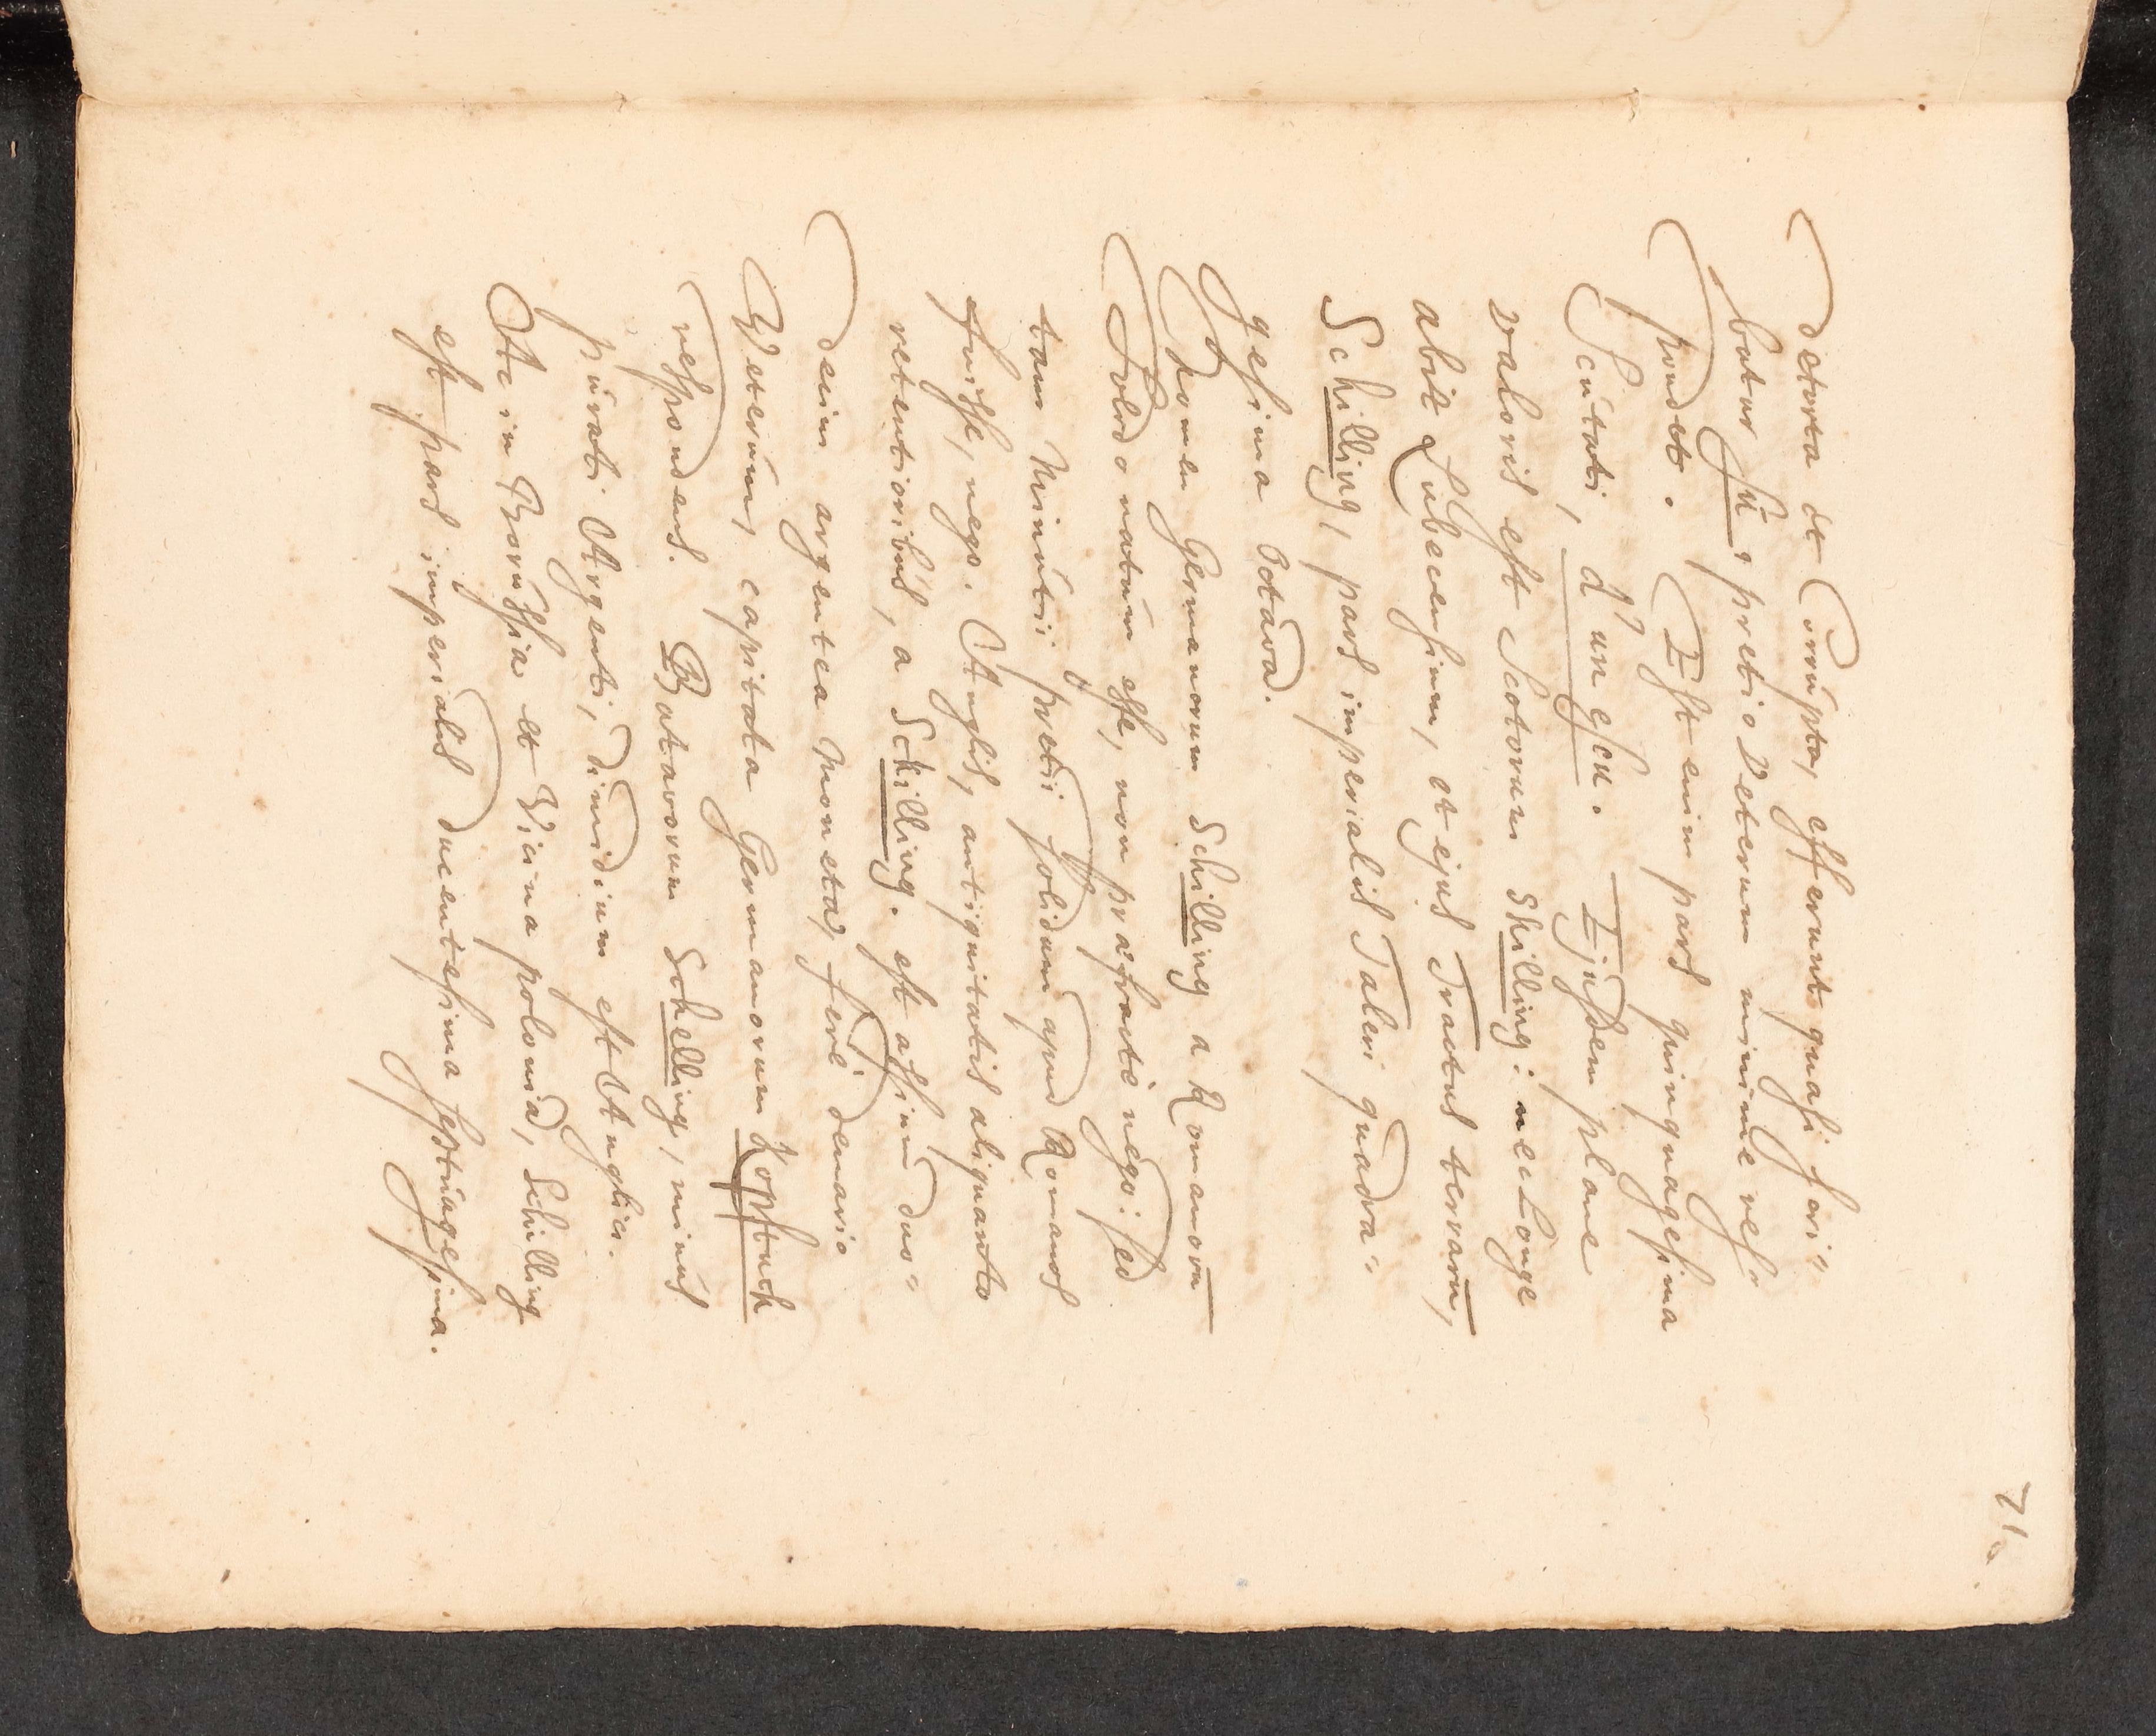 71.
detorta et Corrupta, efferunt quasi scri⸗
batur su, pretio veterum minime res⸗
pondet. Est enim pars quinquagesima
Scutati, d'un escu. Ejusdem plane
valoris est Scotorum Skilling: nec Longe
abit Lubecensium, et ejus Tractus terrarū,
Schilling, pars imperialis Taleri quadra⸗
gesima Octava.
Nomen Germanorum Schilling a Romanorū
Solido natum esse, non præfracte nego: sed
tam Minutii pretii solidum apud Romanos
fuisse, nego. Anglis, antiquitatis aliquanto
retentioribus, a Schilling. est assium duo⸗
decim argentea Moneta, fere denario
Veterum, capitata Germanorum Kopstuck
respondens. Batavorum Schelling, minus
purati Argenti, dimidium est Anglici.
At in Borussia et Vicina polonia, Schilling
est pars imperialis ducentesima septuagesima.